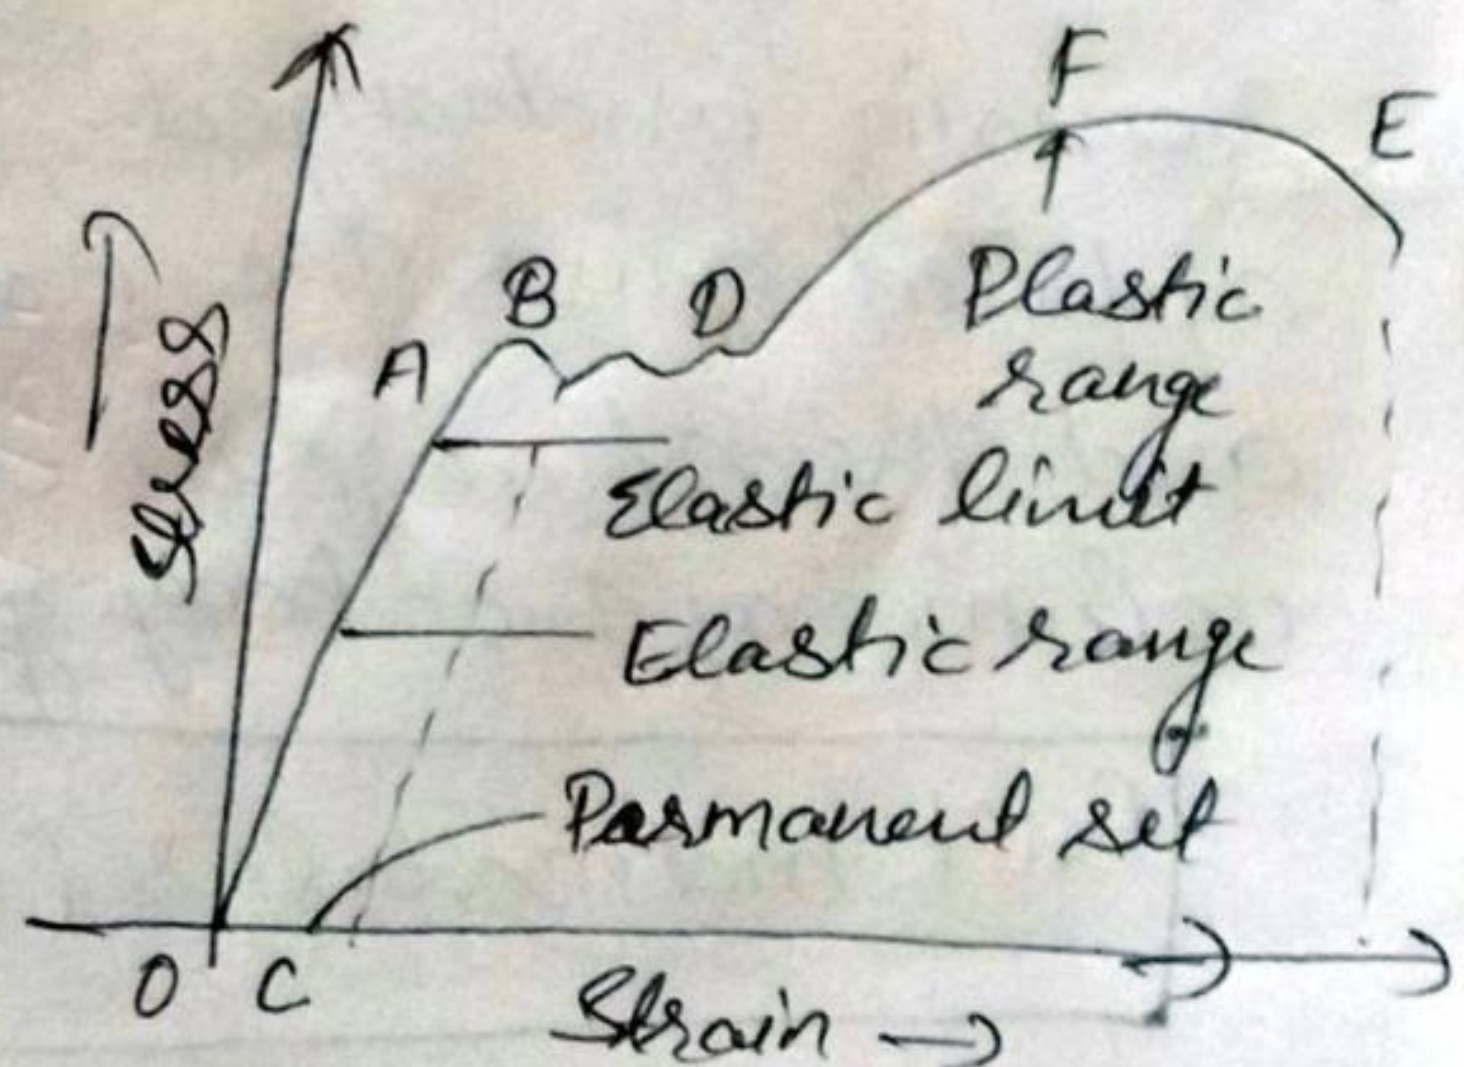 F
E
B
D
A
Stress
Plastic
range
Elastic limit
Elastic range
Parmanent set
O C
Strain →